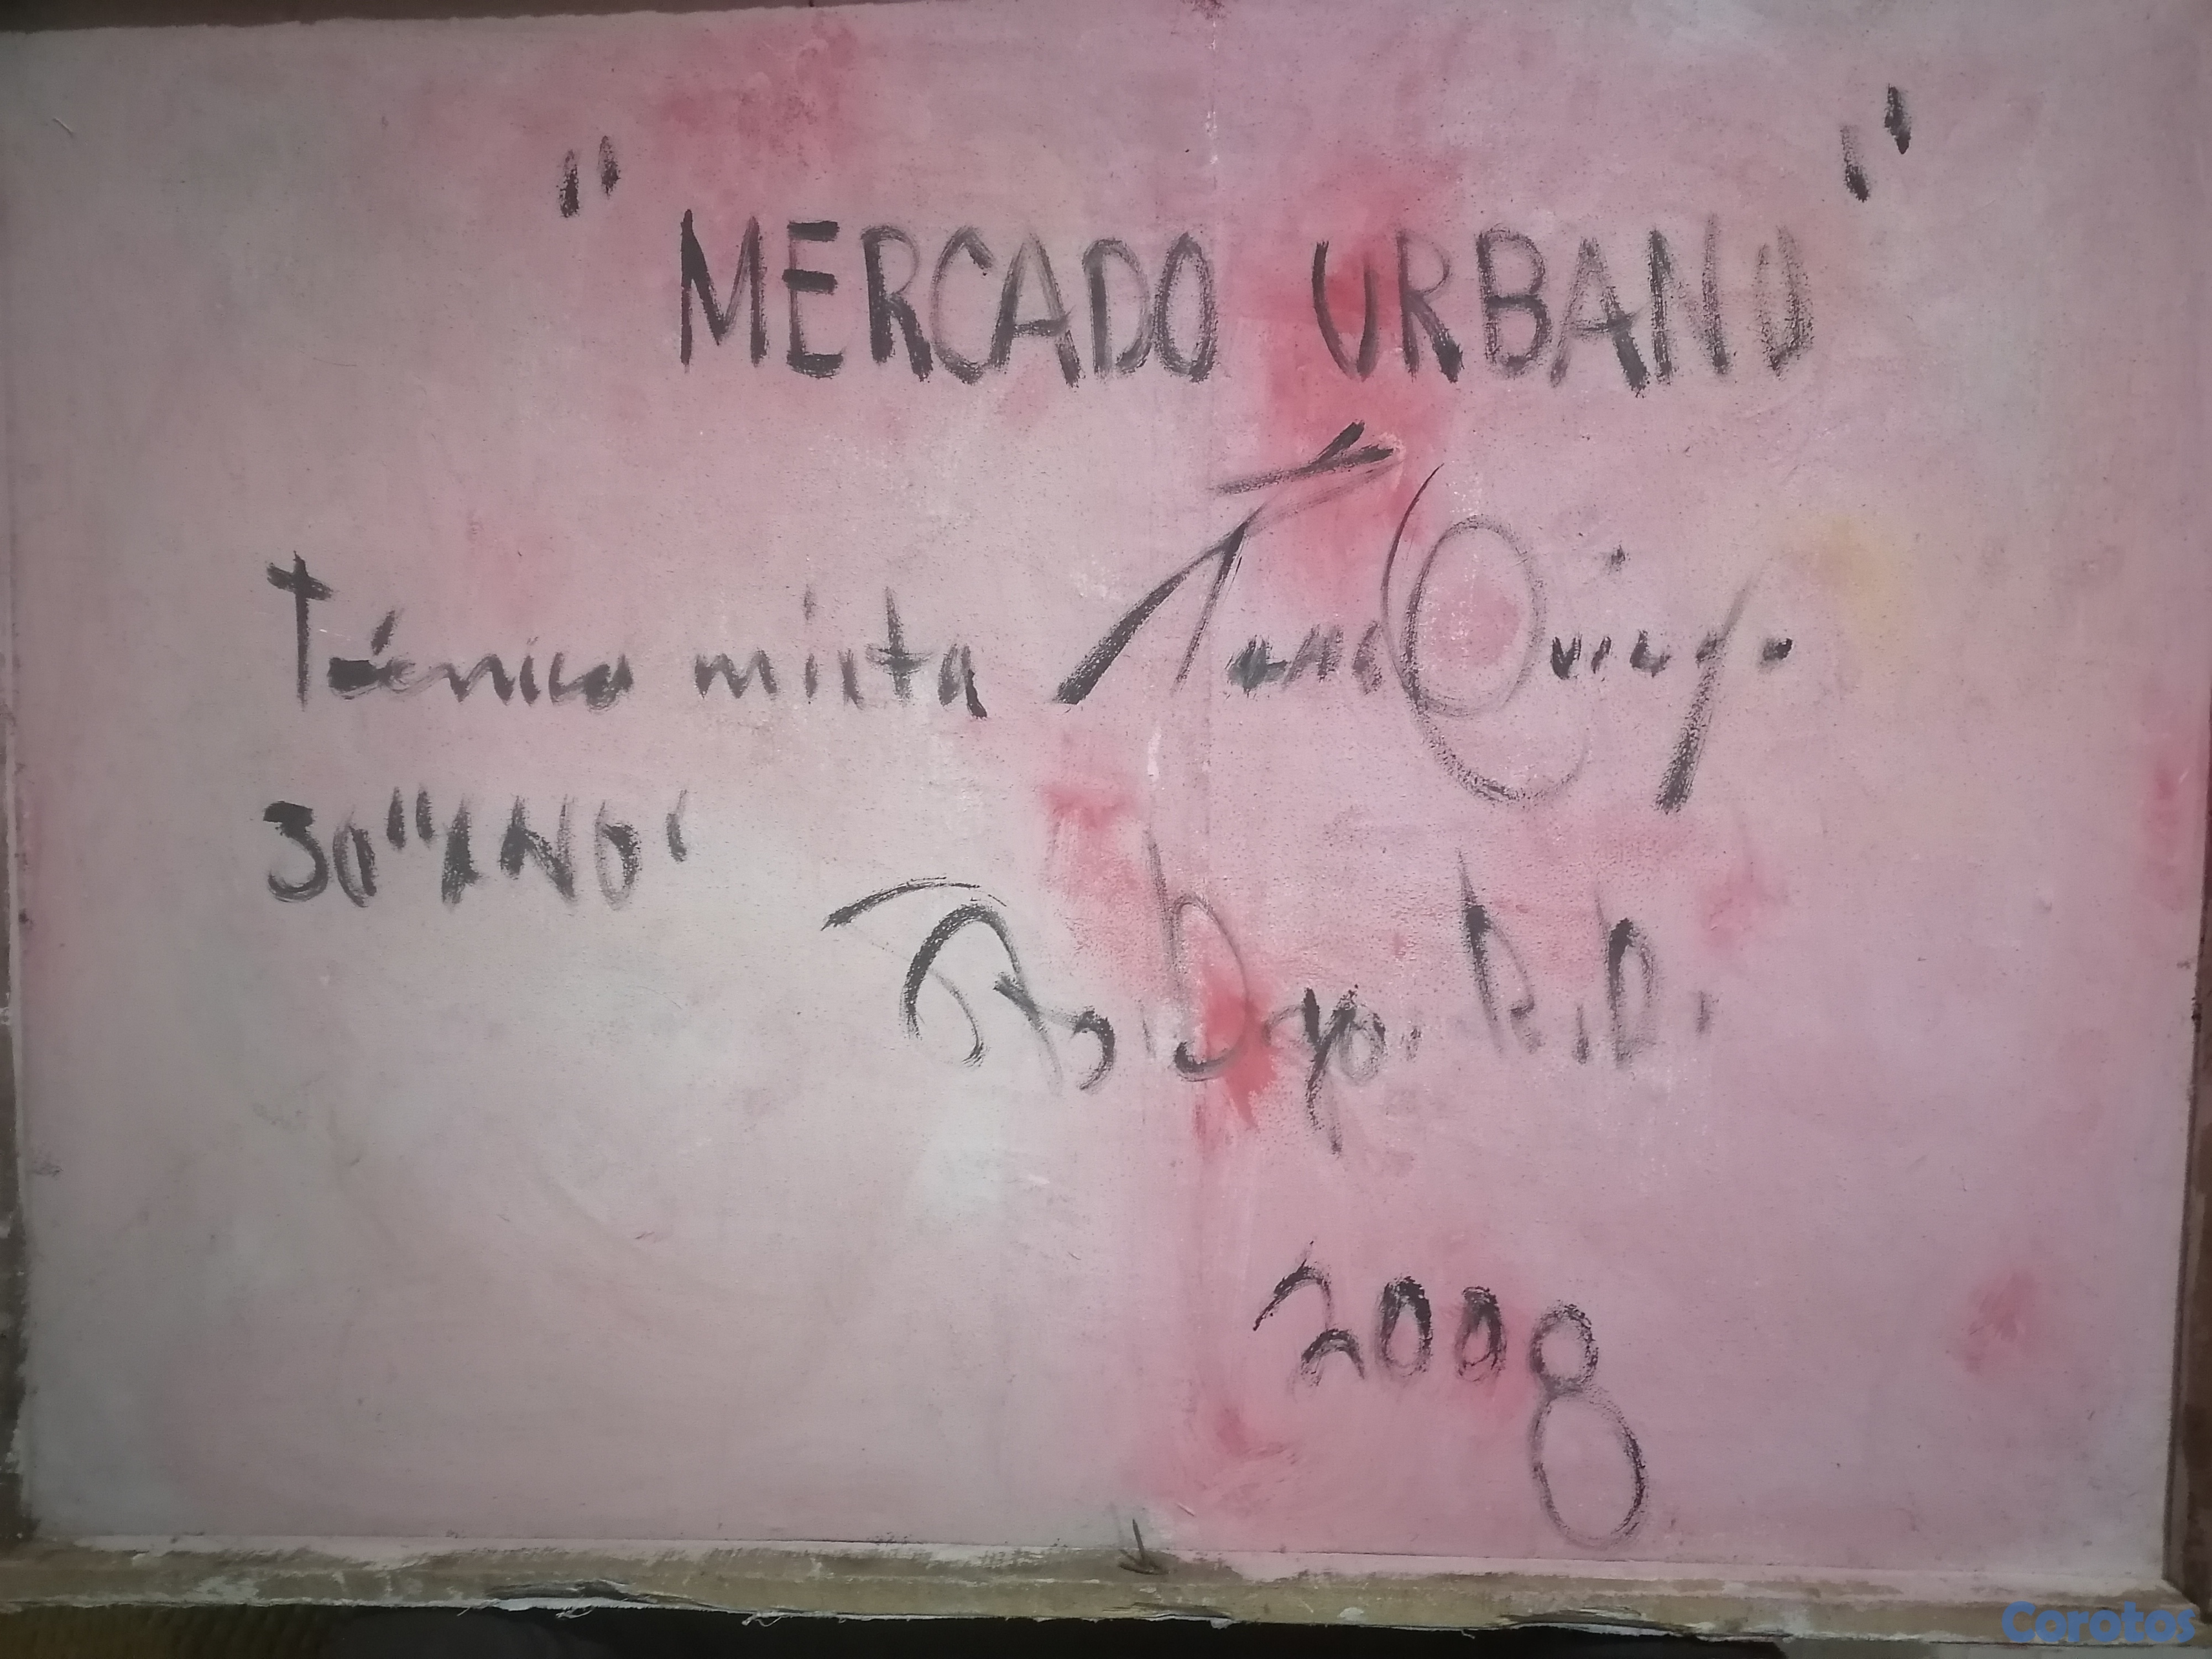 "MERCADO URBANO"
Técnica mixta
30"
Sto. Dgo. R.D.
2008
Corotos